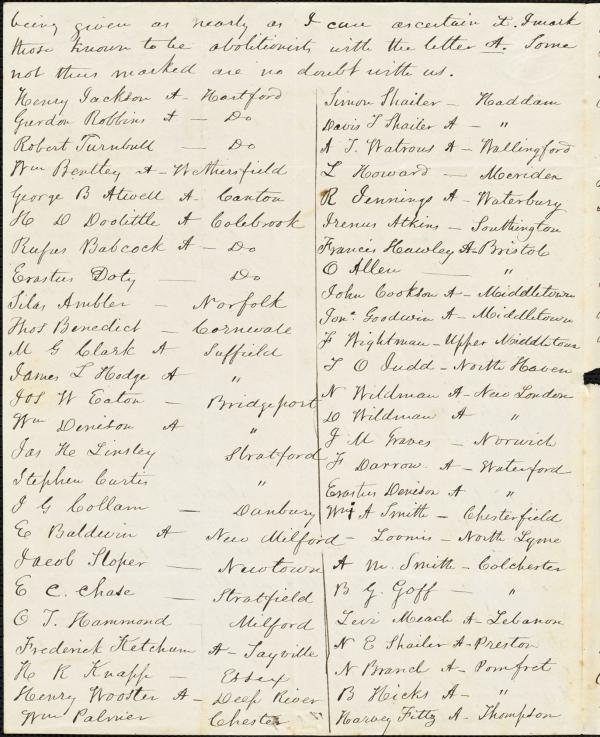 being given as nearly as I can ascertain it. I mark
those known to be abolitionists with the letter A. Some
not thus marked are no doubt with us.
Henry Jackson A - Hartford
Gurdon Robbins A - Do
Robert Turnbull - Do
Wm Bentley A - Wethersfield
George B Atwell A - Canton
H D Doolittle A Colebrook
Rufus Babcock A - Do
Erastus Doty - Do
Silas Ambler - Norfolk
Thos Benedict - Cornwall
M G Clark A Suffield
James L Hodge A "
Jos W Eaton - Bridgeport
Wm Denison A "
Jas H Linsley Stratford
Stephen Curtis "
J G Collam - Danbury
E Baldwin A New Milford
Jacob Sloper - Newtown
E C. Chase - Stratfield
O T. Hammond Milford
Frederick Ketchum A - Sayville
H R Knapp - Essex
Henry Wooster A - Deep River
Wm Palmer Chester
Simon Shailer - Haddam
Davis T Shailer A - "
A T. Watrous A - Wallingford
L Howard - Meriden
R Jennings A - Waterbury
Irenus Atkins - Southington
Francis Hawley A - Bristol
O Allen - "
John Cookson A - Middletown
Jona. Goodwin A - Middletown
F Wightman - Upper Middletown
T O Judd - North Haven
N Wildman A - New London
D Wildman A "
J M Graves - Norwich
F Darrow. A - Waterford
Erastus Denison A "
Wm A Smith - Chesterfield
- Loomis - North Lyme
A M. Smith - Colchester
B G. Goff - "
Levi Meach A - Lebanon
N E Shailer A - Preston
N Branch A - Pomfret
B Hicks A - "
Harvey Fittz A - Thompson